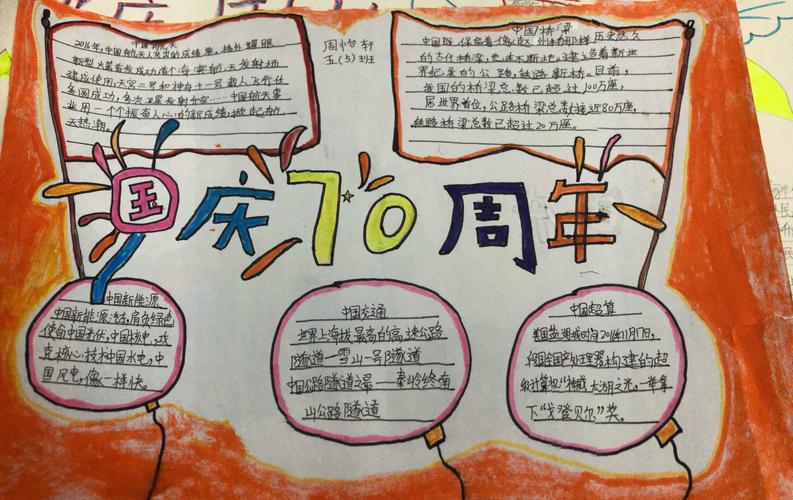 中国航天
2016年,中国航天人充当的成绩单,格外耀眼
新型火箭首发成功首个海南航天发射场
建成使用,天宫二号和神舟十一号载人飞行任
务圆成功,多次卫星发射升空……中国航天事
业用一个个振奋人心的新成绩,掀起航
天热潮。
周怡轩
五(5)班
中国桥梁
中国既保留着像赵州桥那样历史悠久
的古代桥梁,也建着世
界纪录的公路,铁路新桥。目前,
我国的桥梁总数已超过100万座,
居世界首位,公路桥梁总数接近80万座,
铁路桥梁总数已超过20万座。
国庆70周年
中国新能源
中国新能源活,肩负绿色
使命中国光伏,中国核电,攻
克核心技术中国水电,中
国风电,像一样快。
中国交通
世界上海拔最高的高速公路
隧道—雪山一号隧道
中国公路隧道之最——秦岭终南
山公路隧道
中国超算
美国盐湖城时间2016年11月17日,
我国国产处理器构建的超
级计算机"神威·太湖之光"一举拿
下"戈登贝尔"奖。